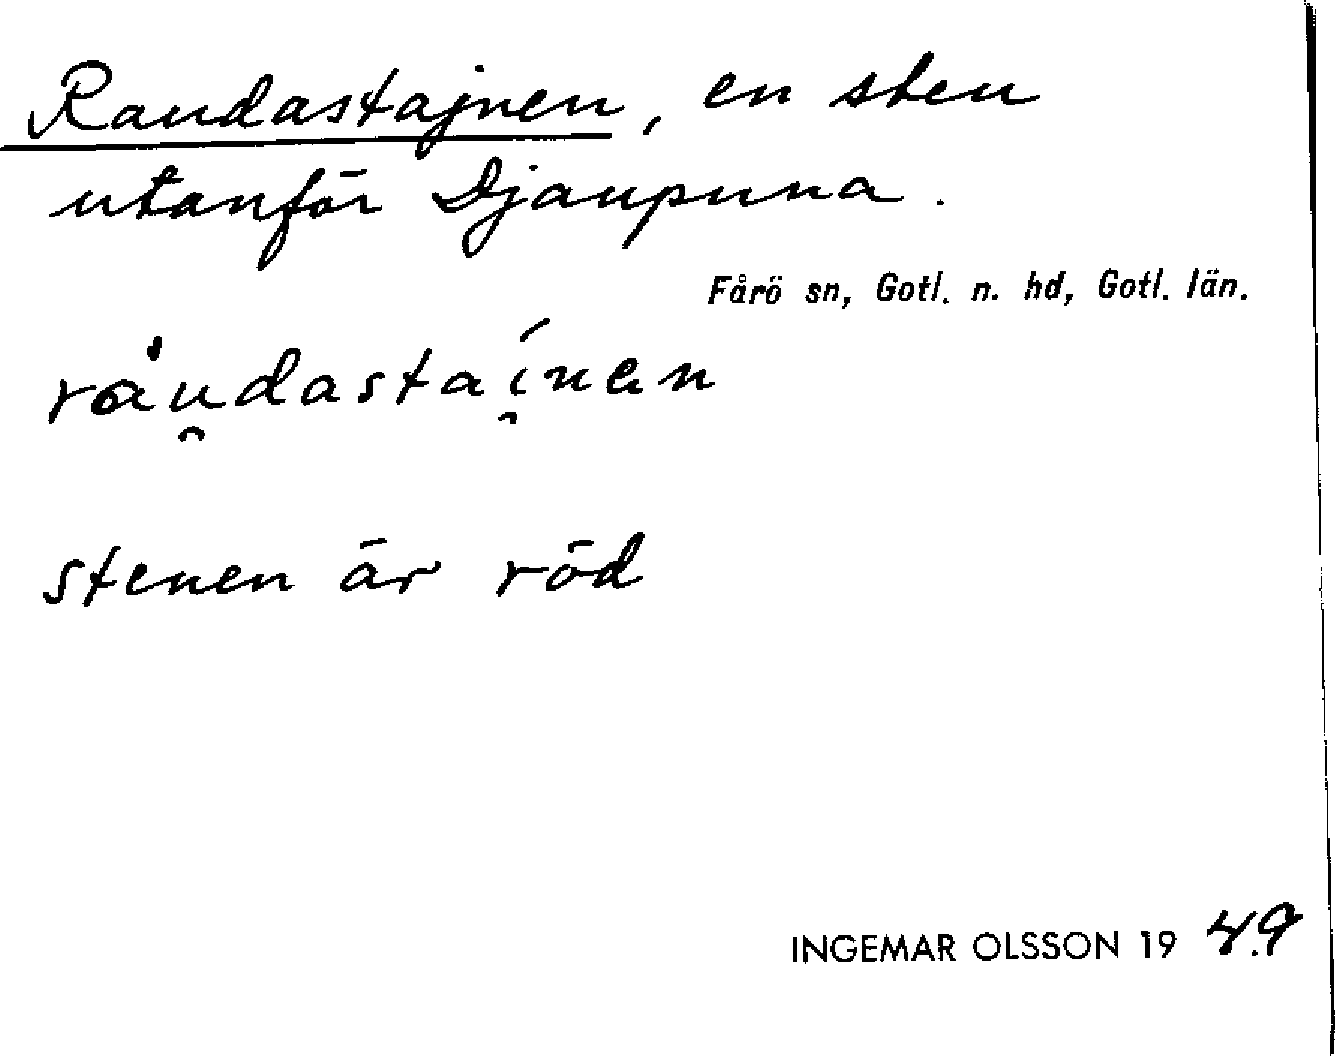 Raudastajnen, en sten
utanför Djaupuna.
Fårö sn, Gotl. n. hd, Gotl. län.
ràu̯dastaí̯nen
stenen är röd
INGEMAR OLSSON 19 49